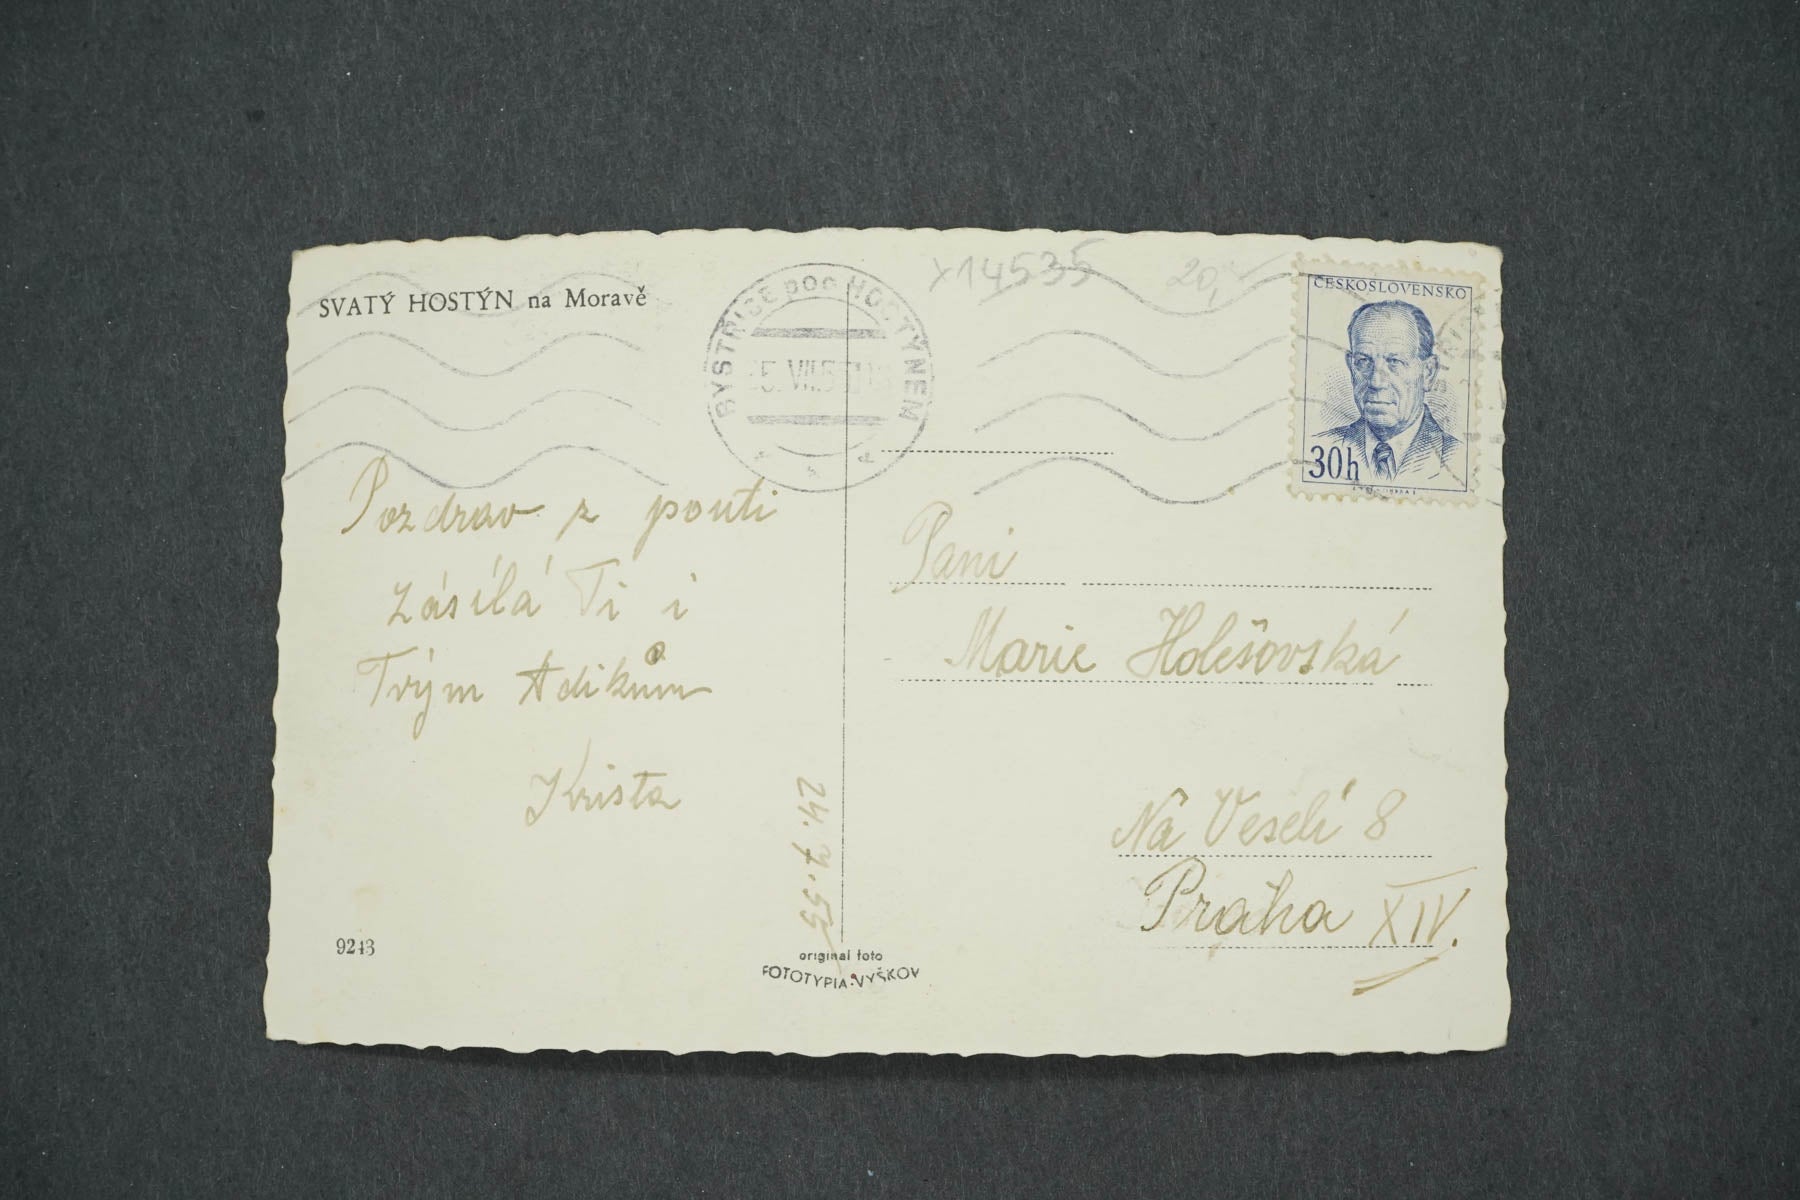 SVATÝ HOSTÝN na Moravě
BYSTŘICE POD HOSTÝNEM
x14535
20,-
ČESKOSLOVENSKO
30h
Pozdrav z pouti
zásílá Ti i
Tvým Adikům
Krista
24. 7. 55
Paní
Marie Holešovská
Na Veselí 8
Praha XIV.
9243
original foto
FOTOTYPIA-VYŠKOV